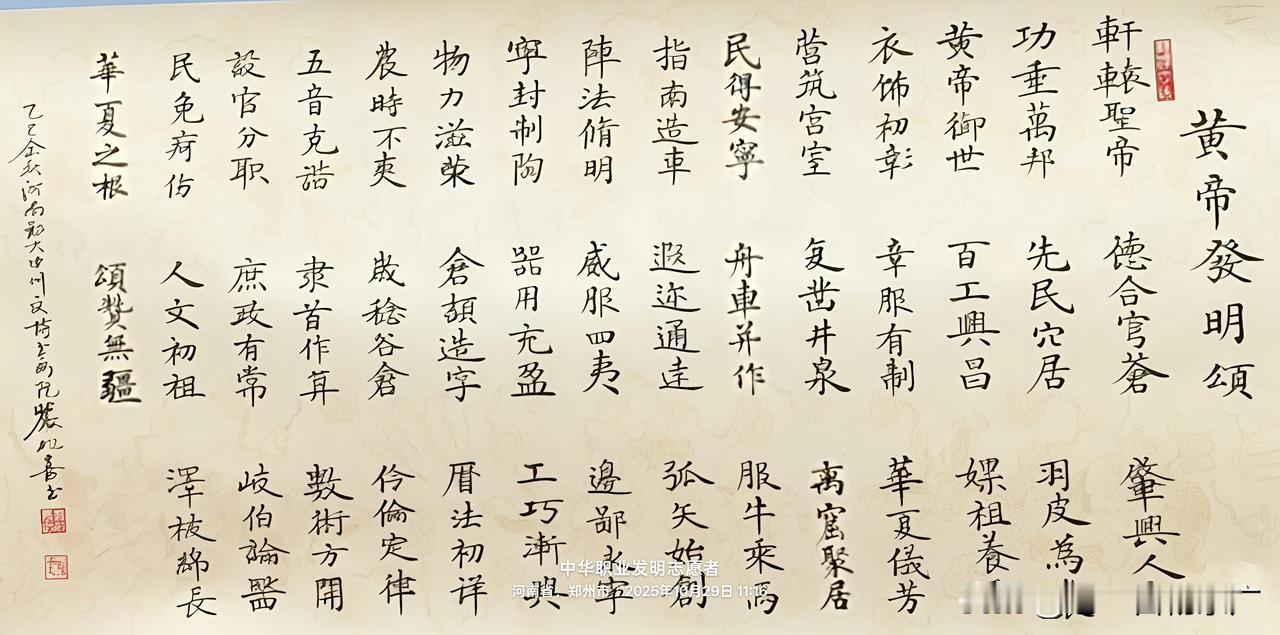 黄帝發明頌
軒轅聖帝 德合穹蒼 肇興人
功垂萬邦 先民穴居 羽皮為
黄帝御世 百工興昌 嫘祖養
衣飾初彰 章服有制 華夏儀芳
营筑宫室 复凿井泉 萬窟聚居
民得安寧 舟車并作 服牛乘馬
指南造車 遐迩通逹 弧矢始創
陣法脩明 威服四夷 邊鄙永寧
寧封制陶 器用充盈 工巧漸興
物力滋榮 倉頡造字 暦法初详
農時不爽 歲稔谷倉 伶倫定律
五音克諧 隶首作算 數術方開
設官分职 庶政有常 岐伯論醫
民免疴伤 人文初祖 澤被綿長
華夏之根 頌赞無疆
乙巳金秋河南
中华职业发明志愿者
河南省 郑州市 2025年10月29日 11:16